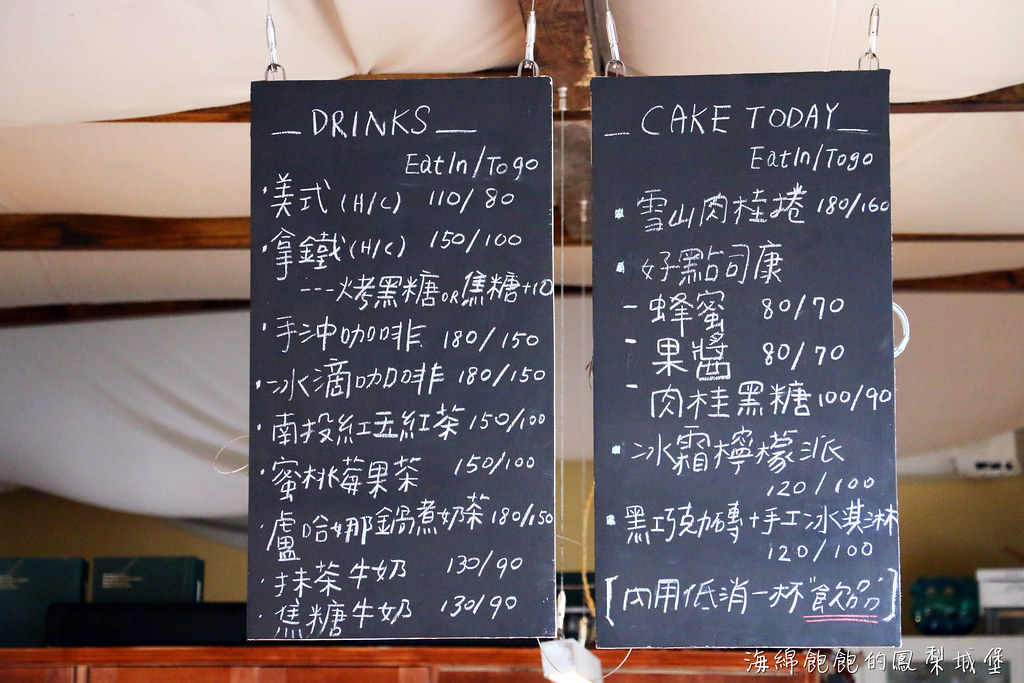 _DRINKS_
EatIn/Togo
·美式(H/C) 110/80
·拿鐵(H/C) 150/100
---烤黑糖OR焦糖+10
·手沖咖啡 180/150
·冰滴咖啡 180/150
·南投紅玉紅茶 150/100
·蜜桃莓果茶 150/100
·盧哈娜鍋煮奶茶 180/150
·抹茶牛奶 130/90
·焦糖牛奶 130/90
_CAKE TODAY_
EatIn/Togo
·雪山肉桂捲 180/160
·好點司康
-蜂蜜 80/70
-果醬 80/70
-肉桂黑糖 100/90
·冰霜檸檬派
120/100
·黑巧克力磚+手工冰淇淋
120/100
[內用低消一杯"飲品"]
海綿飽飽的鳳梨城堡